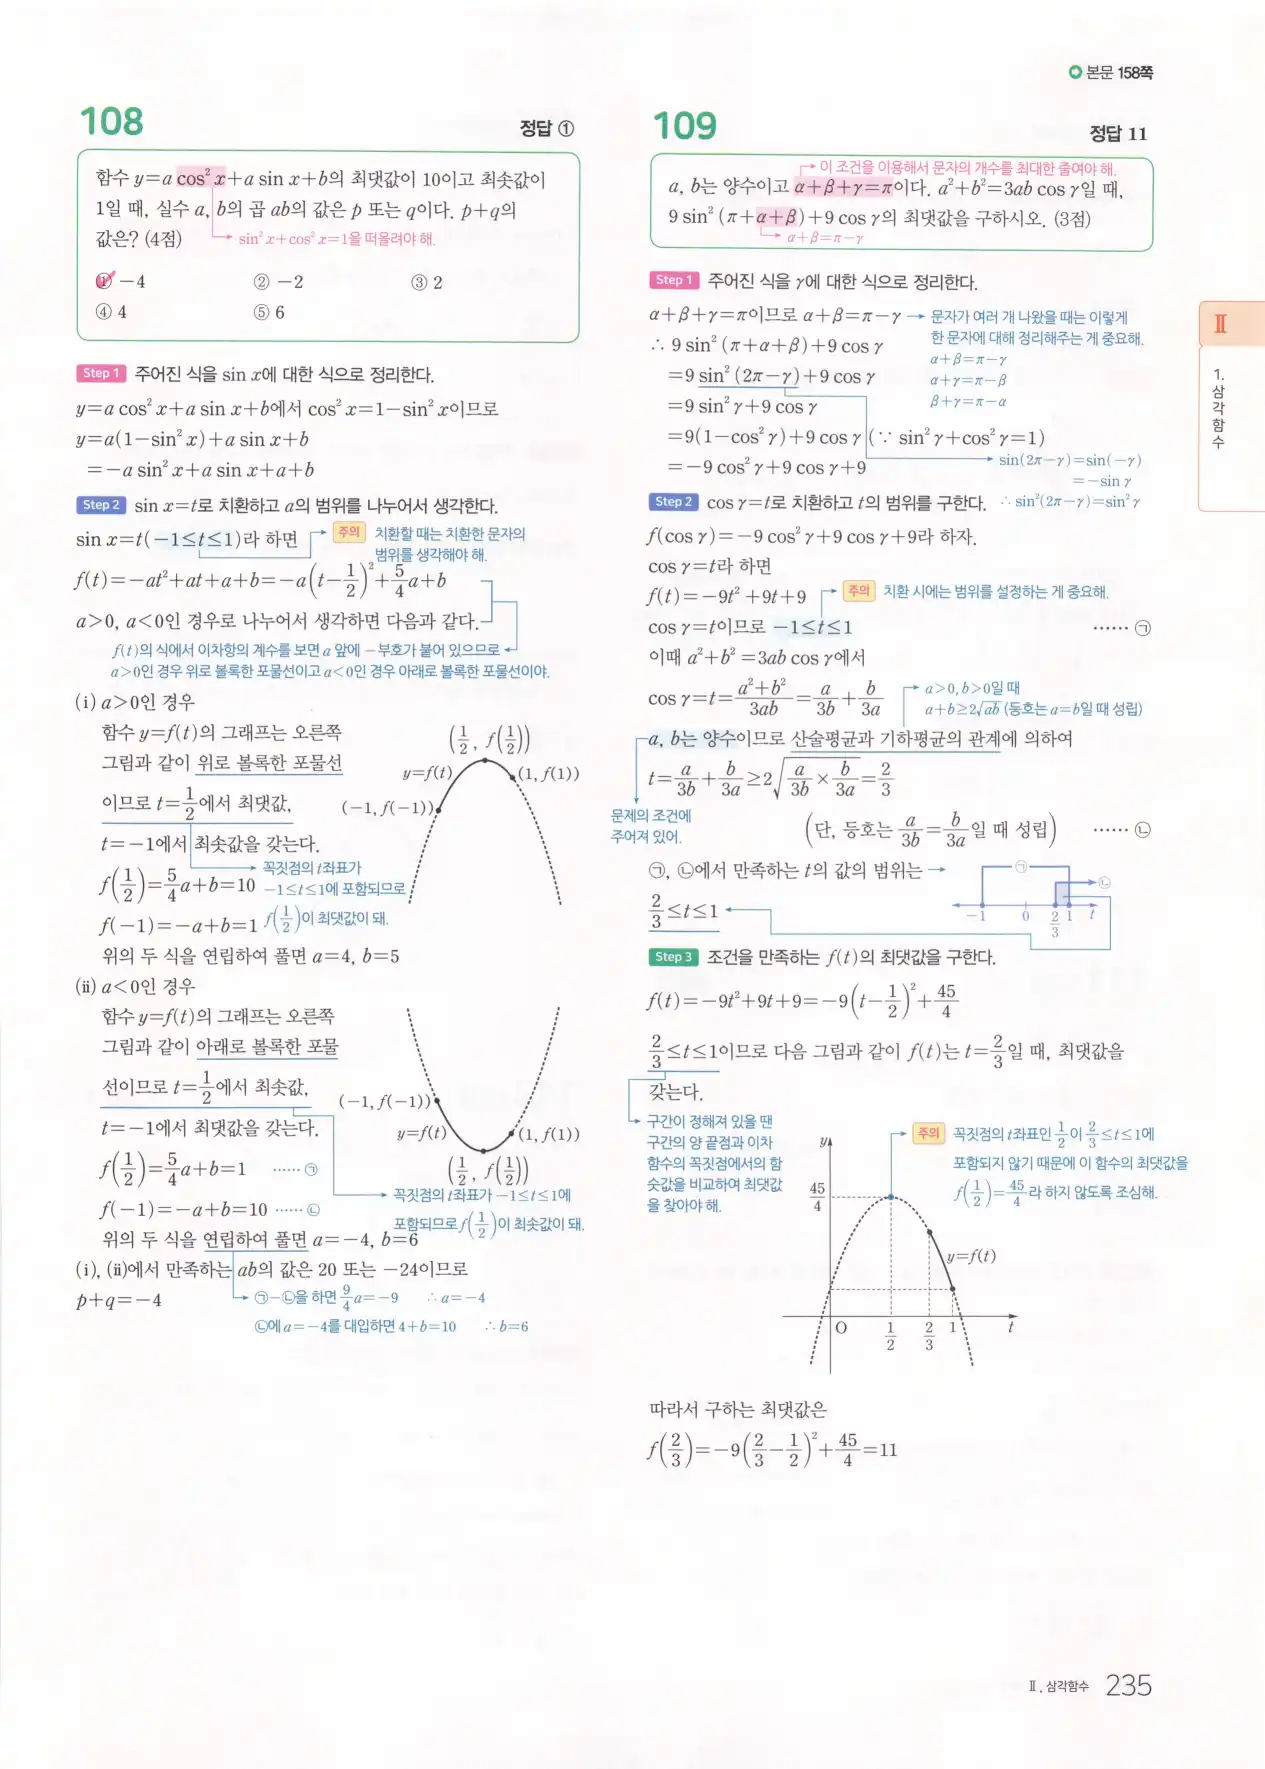 본문 158쪽
108
정답 ①
함수 y=a cos² x+a sin x+b의 최댓값이 10이고 최솟값이
1일 때, 실수 a, b의 곱 ab의 값은 p 또는 q이다. p+q의
값은? (4점)
sin² x+cos² x=1을 떠올려야 해.
① -4 ② -2 ③ 2
④ 4 ⑤ 6
Step 1 주어진 식을 sin x에 대한 식으로 정리한다.
y=a cos² x+a sin x+b에서 cos² x=1-sin² x이므로
y=a(1-sin² x)+a sin x+b
=-a sin² x+a sin x+a+b
Step 2 sin x=t로 치환하고 a의 범위를 나누어서 생각한다.
sin x=t(-1≤t≤1)라 하면
주의 치환할 때는 치환한 문자의
범위를 생각해야 해.
f(t)=-at²+at+a+b=-a(t-1/2)²+5/4a+b
a>0, a<0인 경우로 나누어서 생각하면 다음과 같다.
f(t)의 식에서 이차항의 계수를 보면 a 앞에 -부호가 붙어 있으므로
a>0인 경우 위로 볼록한 포물선이고 a<0인 경우 아래로 볼록한 포물선이야.
(i) a>0인 경우
함수 y=f(t)의 그래프는 오른쪽
그림과 같이 위로 볼록한 포물선
이므로 t=1/2에서 최댓값,
t=-1에서 최솟값을 갖는다.
꼭짓점의 t좌표가
-1≤t≤1에 포함되므로
f(1/2)이 최댓값이 돼.
f(1/2)=5/4a+b=10
f(-1)=-a+b=1
위의 두 식을 연립하여 풀면 a=4, b=5
(1/2, f(1/2))
y=f(t)
(1, f(1))
(-1, f(-1))
(ii) a<0인 경우
함수 y=f(t)의 그래프는 오른쪽
그림과 같이 아래로 볼록한 포물
선이므로 t=1/2에서 최솟값,
t=-1에서 최댓값을 갖는다.
f(1/2)=5/4a+b=1 ······ ㉠
f(-1)=-a+b=10 ······ ㉡
(-1, f(-1))
y=f(t)
(1, f(1))
(1/2, f(1/2))
꼭짓점의 t좌표가 -1≤t≤1에
포함되므로 f(1/2)이 최솟값이 돼.
위의 두 식을 연립하여 풀면 a=-4, b=6
(i), (ii)에서 만족하는 ab의 값은 20 또는 -24이므로
p+q=-4
㉠-㉡을 하면 9/4a=-9 ∴ a=-4
㉡에 a=-4를 대입하면 4+b=10 ∴ b=6
109
정답 11
이 조건을 이용해서 문자의 개수를 최대한 줄여야 해.
a, b는 양수이고 α+β+γ=π이다. a²+b²=3ab cos γ일 때,
9 sin² (π+α+β)+9 cos γ의 최댓값을 구하시오. (3점)
α+β=π-γ
Step 1 주어진 식을 γ에 대한 식으로 정리한다.
α+β+γ=π이므로 α+β=π-γ
문자가 여러 개 나왔을 때는 이렇게
한 문자에 대해 정리해주는 게 중요해.
α+β=π-γ
α+γ=π-β
β+γ=π-α
∴ 9 sin² (π+α+β)+9 cos γ
=9 sin² (2π-γ)+9 cos γ
=9 sin² γ+9 cos γ
=9(1-cos² γ)+9 cos γ (∵ sin² γ+cos² γ=1)
=-9 cos² γ+9 cos γ+9
sin(2π-γ)=sin(-γ)
=-sin γ
∴ sin²(2π-γ)=sin² γ
Step 2 cos γ=t로 치환하고 t의 범위를 구한다.
f(cos γ)=-9 cos² γ+9 cos γ+9라 하자.
cos γ=t라 하면
f(t)=-9t²+9t+9
주의 치환 시에는 범위를 설정하는 게 중요해.
cos γ=t이므로 -1≤t≤1 ······ ㉠
이때 a²+b²=3ab cos γ에서
cos γ=t=(a²+b²)/3ab=a/3b+b/3a
a>0, b>0일 때
a+b≥2√ab (등호는 a=b일 때 성립)
a, b는 양수이므로 산술평균과 기하평균의 관계에 의하여
t=a/3b+b/3a≥2√(a/3b×b/3a)=2/3
문제의 조건에
주어져 있어.
(단, 등호는 a/3b=b/3a일 때 성립) ······ ㉡
㉠, ㉡에서 만족하는 t의 값의 범위는
2/3≤t≤1
㉠
㉡
-1 0 2/3 1 t
Step 3 조건을 만족하는 f(t)의 최댓값을 구한다.
f(t)=-9t²+9t+9=-9(t-1/2)²+45/4
2/3≤t≤1이므로 다음 그림과 같이 f(t)는 t=2/3일 때, 최댓값을
갖는다.
구간이 정해져 있을 땐
구간의 양 끝점과 이차
함수의 꼭짓점에서의 함
숫값을 비교하여 최댓값
을 찾아야 해.
주의 꼭짓점의 t좌표인 1/2이 2/3≤t≤1에
포함되지 않기 때문에 이 함수의 최댓값을
f(1/2)=45/4라 하지 않도록 조심해.
y
45/4
y=f(t)
O 1/2 2/3 1 t
따라서 구하는 최댓값은
f(2/3)=-9(2/3-1/2)²+45/4=11
Ⅱ
1.
삼
각
함
수
Ⅱ. 삼각함수 235